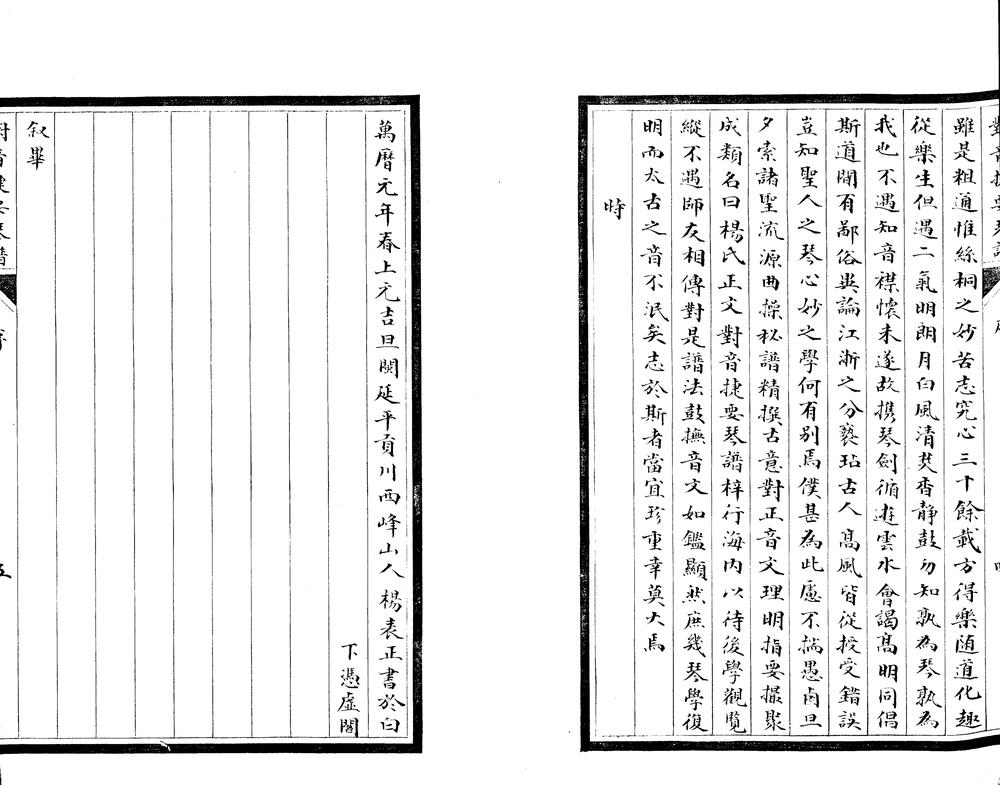 雖是粗通惟絲桐之妙苦志究心三十餘載方得樂随道化趣
從樂生但遇二氣明朗月白風清焚香静鼓勿知孰為琴孰為
我也不遇知音襟懷未遂故携琴劍循遊雲水會謁髙明同倡
斯道間有鄙俗異論江浙之分褻玷古人髙風皆從授受錯誤
豈知聖人之琴心妙之學何有别焉僕甚為此慮不揣愚鹵旦
夕索諸聖流源曲操秘譜精撰古意對正音文理明指要撮聚
成類名曰楊氏正文對音捷要琴譜梓行海内以待後學觀覽
縱不遇師友相傳對是譜法鼓撫音文如鑑顯然庶幾琴學復
明而太古之音不泯矣志於斯者當宜珍重幸莫大焉
時
萬曆元年春上元吉旦閩延平貢川西峰山人楊表正書於白
下憑虚閣
叙畢
五